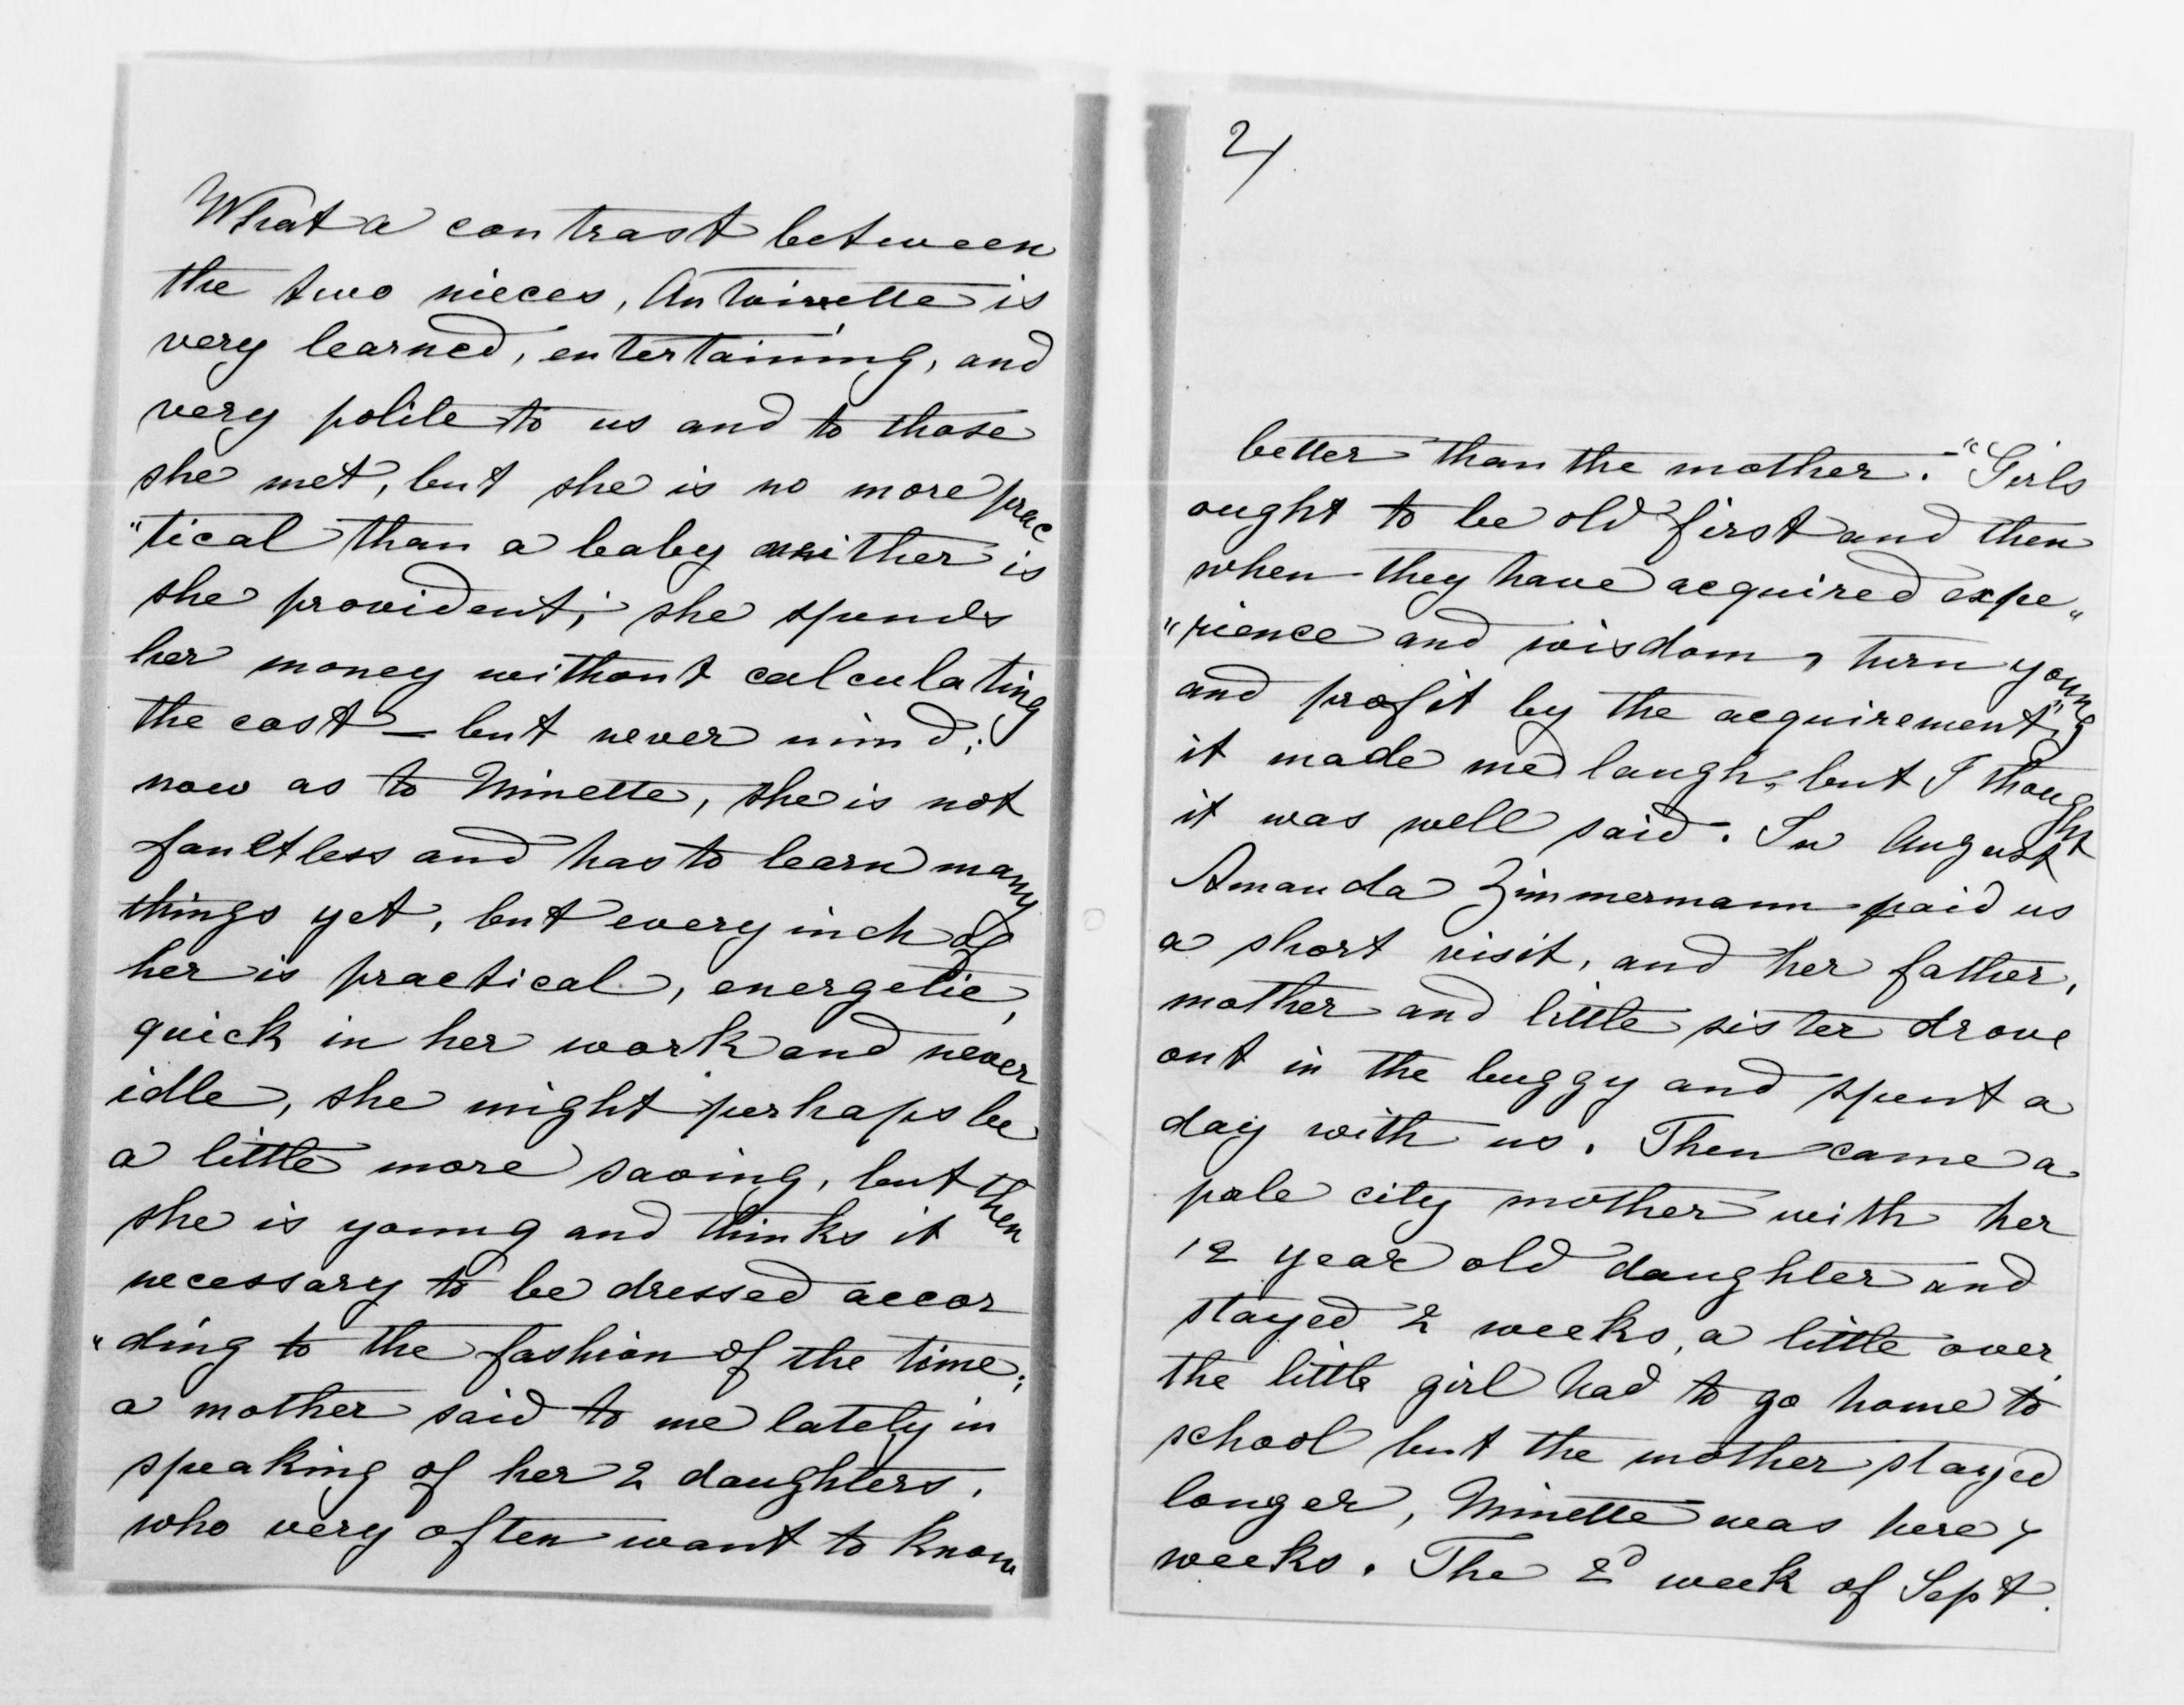 What a contrast between
the two nieces, Antoinette is
very learned, entertaining, and
very polite to us and to those
she met, but she is no more prac
"tical than a baby neither is
she provident; she spends
her money without calculating
the cost — but never mind;
now as to Minette, she is not
faultless and has to learn many
things yet, but every inch of
her is practical, energetic,
quick in her work and never
idle, she might perhaps be
a little more saving, but then
she is young and thinks it
necessary to be dressed accor
"ding to the fashion of the time;
a mother said to me lately in
speaking of her 2 daughters,
who very often want to know
2/.
better than the mother. "Girls
ought to be old first and then
when they have acquired expe"
"rience and wisdom, turn young
and profit by the acquirement",
it made me laugh, but I thought
it was well said. In August
Amanda Zimmermann paid us
a short visit, and her father,
mother and little sister drove
out in the buggy and spent a
day with us. Then came a
pale city mother with her
12 year old daughter and
stayed 2 weeks, a little over
the little girl had to go home to
school but the mother stayed
longer, Minette was here 7
weeks. The 2d week of Sept.